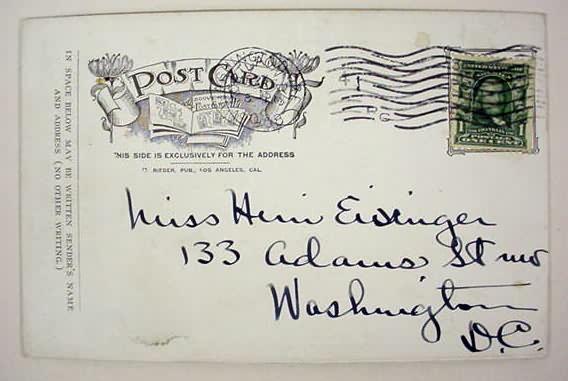 POST CARD
THIS SIDE IS EXCLUSIVELY FOR THE ADDRESS
M. RIEDER, PUB., LOS ANGELES, CAL.
Miss Eisinger
133 Adams St nw
Washington
D.C.
IN SPACE BELOW MAY BE WRITTEN SENDER'S NAME
AND ADDRESS (NO OTHER WRITING.)